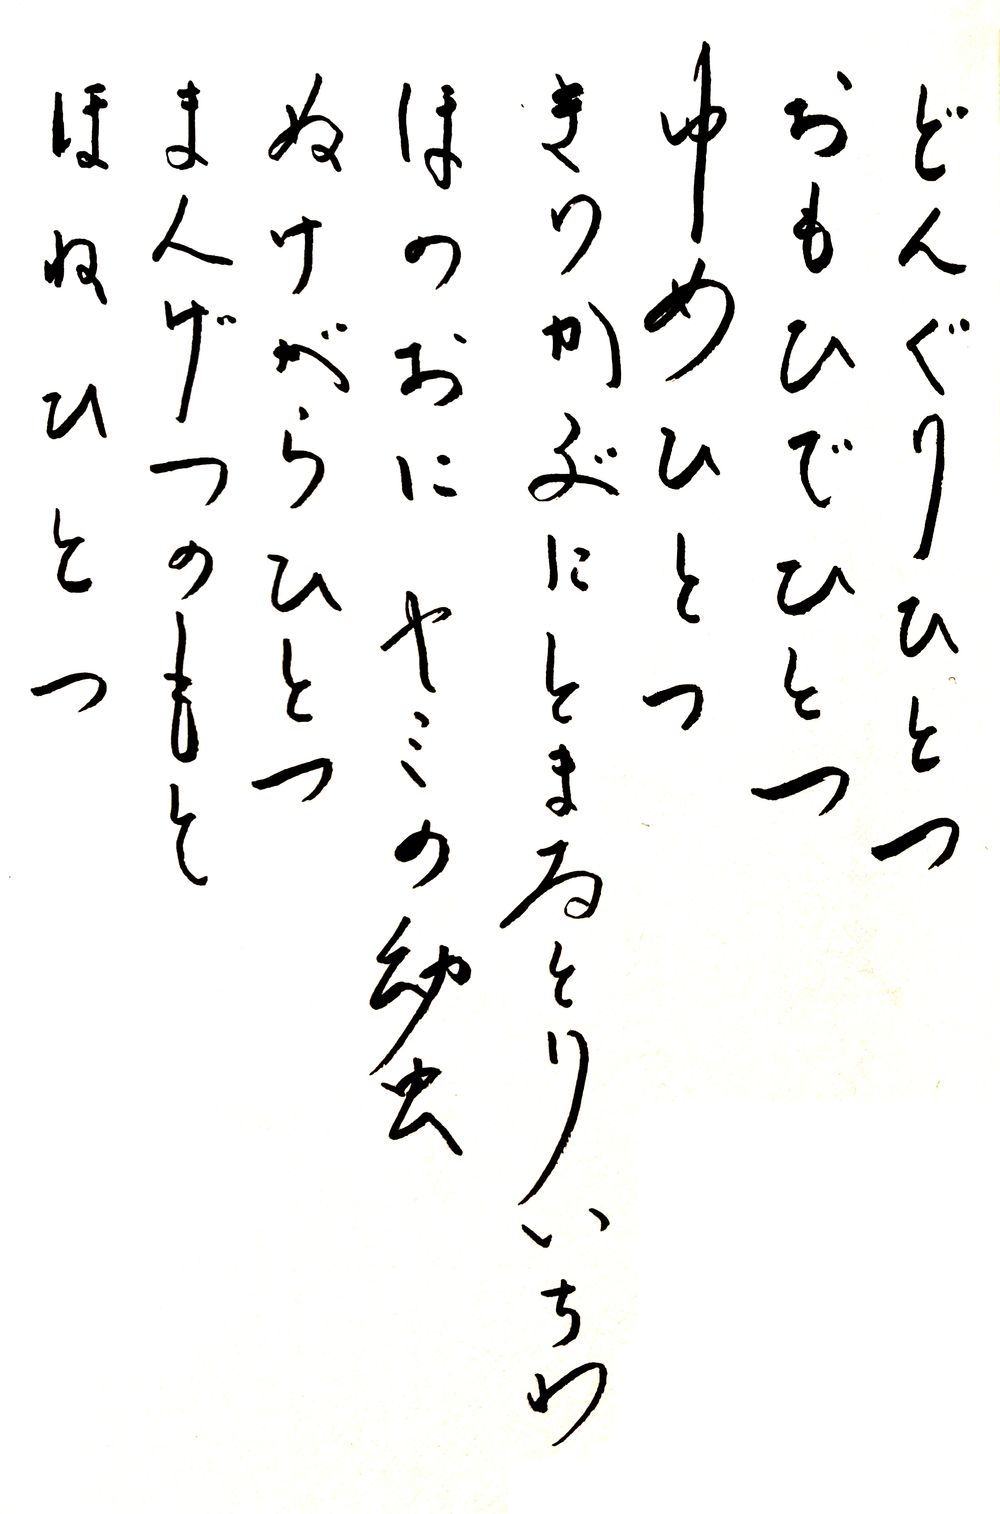 どんぐりひとつ
おもひでひとつ
ゆめひとつ
きりかぶにとまるとりいちわ
ほのおに やミの幼虫
ぬけがらひとつ
まんげつのもと
ほねひとつ